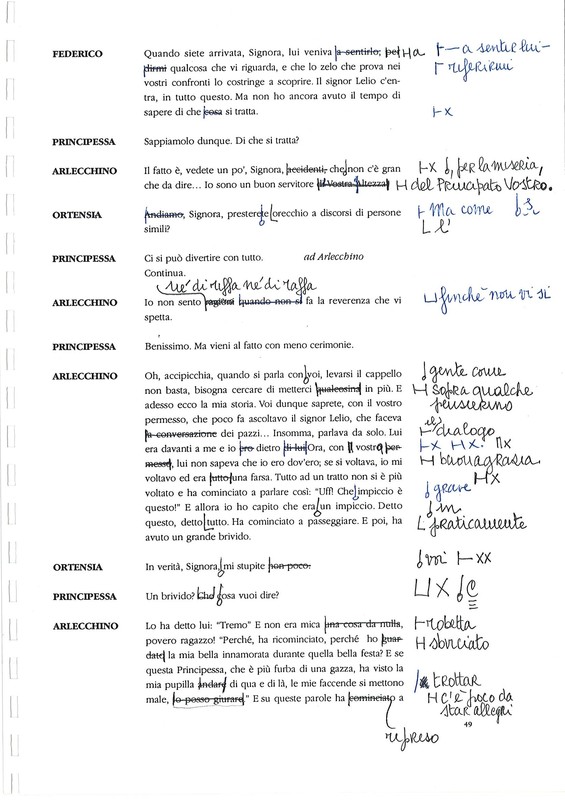 FEDERICO Quando siete arrivata, Signora, lui veniva a sentirlo, per Ha ⊢ a sentir lui
dirmi qualcosa che vi riguarda, e che lo zelo che prova nei riferirmi
vostri confronti lo costringe a scoprire. Il signor Lelio c'en-
tra, in tutto questo. Ma non ho ancora avuto il tempo di
sapere di che cosa si tratta. ⊢x
PRINCIPESSA Sappiamolo dunque. Di che si tratta?
ARLECCHINO Il fatto è, vedete un po', Signora, accidenti, che non c'è gran ⊢x , per la miseria,
che da dire... Io sono un buon servitore di Vostra Altezza! H del Principato Vostro.
ORTENSIA Andiamo, Signora, presterete orecchio a discorsi di persone ⊢ Ma come
simili? L l'
PRINCIPESSA Ci si può divertire con tutto. ad Arlecchino
Continua.
né di riffa né di raffa
ARLECCHINO Io non sento ragioni quando non si fa la reverenza che vi finché non vi si
spetta.
PRINCIPESSA Benissimo. Ma vieni al fatto con meno cerimonie.
ARLECCHINO Oh, accipicchia, quando si parla con voi, levarsi il cappello gente come
non basta, bisogna cercare di metterci qualcosina in più. E H sopra qualche
adesso ecco la mia storia. Voi dunque saprete, con il vostro pensierino
permesso, che poco fa ascoltavo il signor Lelio, che faceva il
la conversazione dei pazzi... Insomma, parlava da solo. Lui dialogo
era davanti a me e io ero dietro di lui Ora, con il vostro per- ⊢x Hx. ∏x
messo, lui non sapeva che io ero dov'ero; se si voltava, io mi H buonagrasia
voltavo ed era tutto una farsa. Tutto ad un tratto non si è più Hx
voltato e ha cominciato a parlare così: "Uff! Che impiccio è grave
questo!" E allora io ho capito che era un impiccio. Detto in
questo, detto tutto. Ha cominciato a passeggiare. E poi, ha praticamente
avuto un grande brivido.
ORTENSIA In verità, Signora mi stupite non poco. voi ⊢xx
PRINCIPESSA Un brivido? Che cosa vuoi dire? ⊔x C
ARLECCHINO Lo ha detto lui: "Tremo" E non era mica una cosa da nulla, ⊢robetta
povero ragazzo! "Perché, ha ricominciato, perché ho guar- H sbirciato
dato la mia bella innamorata durante quella bella festa? E se
questa Principessa, che è più furba di una gazza, ha visto la
mia pupilla andare di qua e di là, le mie faccende si mettono trottar
male, lo posso giurare." E su queste parole ha cominciato a H c'è poco da
star allegri
49
ripreso